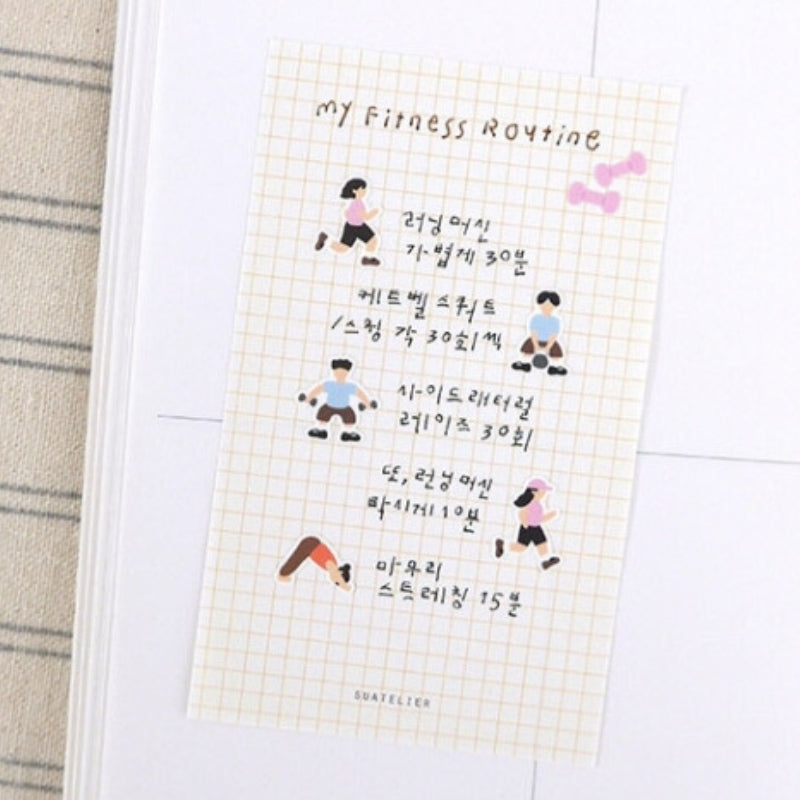 My Fitness Routine
러닝머신
가볍게 30분
케틀벨 스쿼트
/스윙 각 30회씩
사이드래터럴
레이즈 30회
또, 런닝머신
빡시게 10분
마무리
스트레칭 15분
SUATELIER